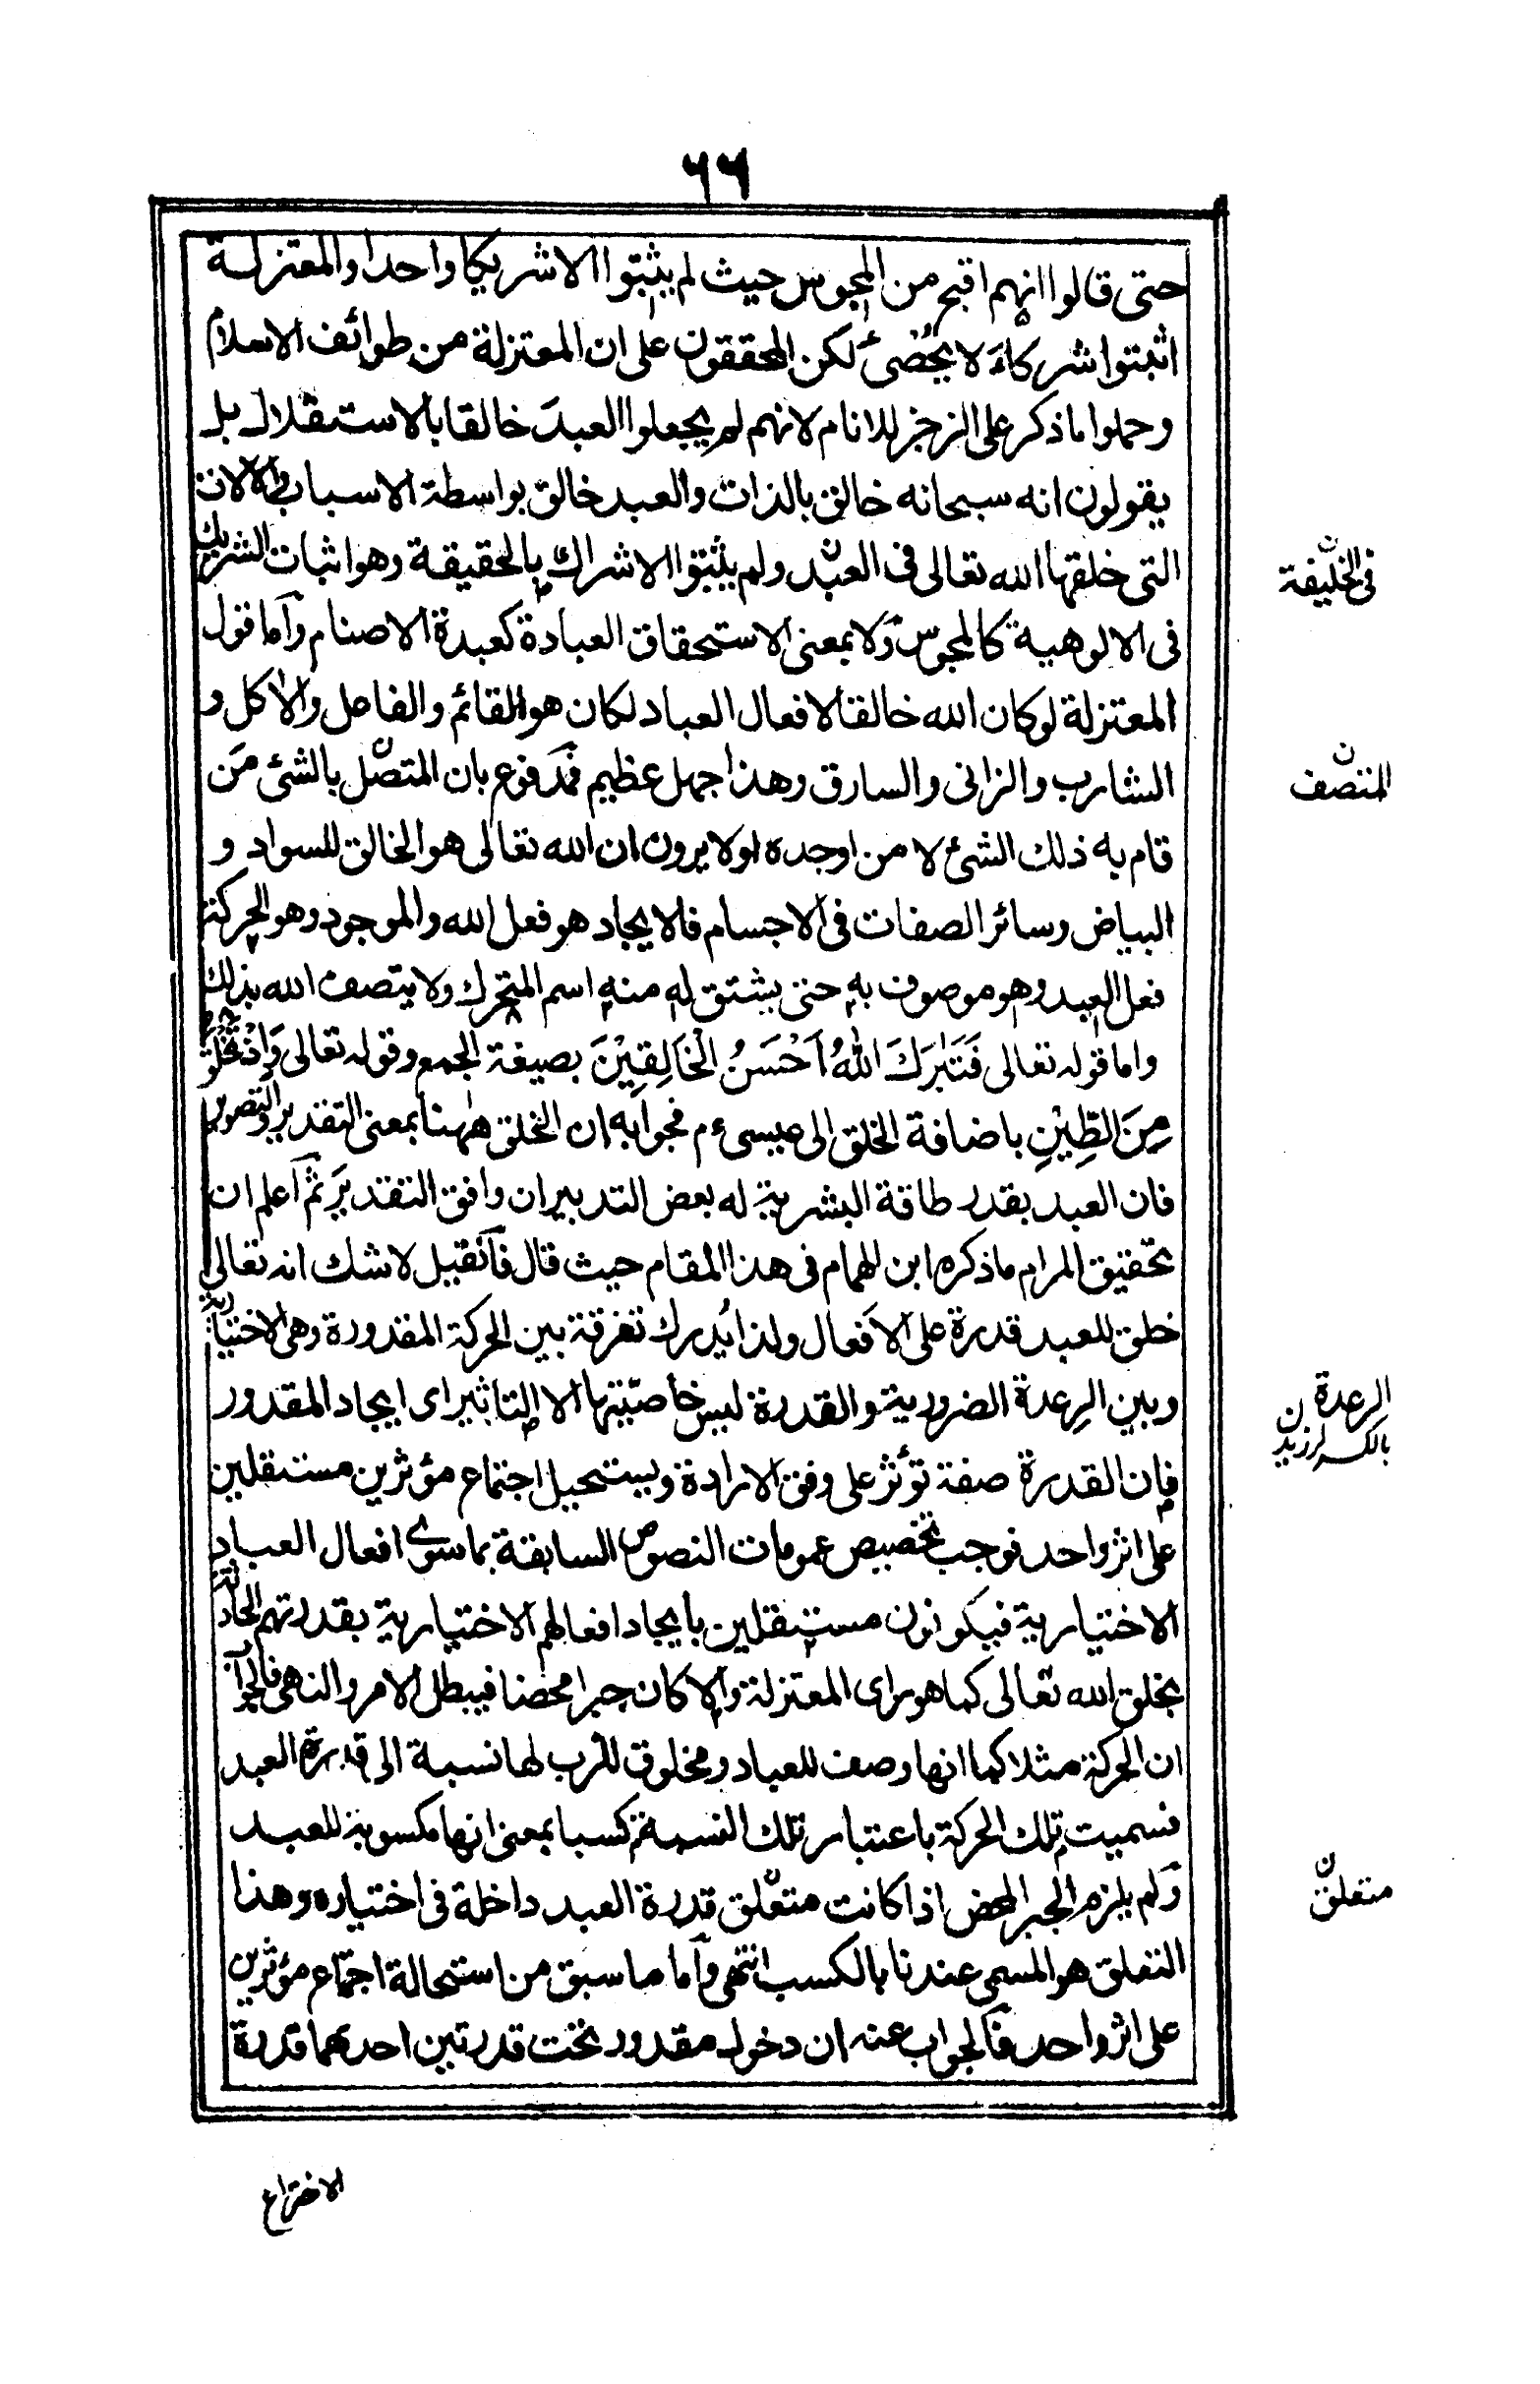 ٦٦
حتى قالوا انهم اقبح من المجوس حيث لم يثبتوا الا شريكا واحدا والمعتزلة
اثبتوا شركاء لا يحصى لكن المحققون على ان المعتزلة من طوائف الاسلام
وحملوا ما ذكر على الزجر للانام لانهم لم يجعلوا العبد خالقا بالاستقلال بل
يقولون انه سبحانه خالق بالذات والعبد خالق بواسطة الاسباب والآلات
التى خلقها الله تعالى فى العبد ولم يثبتوا الاشراك بالحقيقة وهو اثبات الشريك
فى الخليفة ن
فى الالوهية كالمجوس ولا بمعنى الاستحقاق العبادة كعبدة الاصنام وآما قول
المعتزلة لو كان الله خالقا لافعال العباد لكان هو القائم والفاعل والآكل و
الشارب والزانى والسارق وهذا جهل عظيم فمدفوع بان المتصل بالشئ من
المتصف ن
قام به ذلك الشئ لا من اوجده اولا يرون ان الله تعالى هو الخالق للسواد و
البياض وسائر الصفات فى الاجسام فالايجاد هو فعل الله والموجود وهو الحركة
فعل العبد وهو موصوف به حتى يشتق له منه اسم المتحرك ولا يتصف الله بذلك
واما قوله تعالى فَتَبٰرَكَ اللّٰهُ اَحْسَنُ الْخَالِقِيْنَ بصيغة الجمع وقوله تعالى وَاِذْ تَخْلُقُ
مِنَ الطِّيْنِ باضافة الخلق الى عيسى ءم فجوابه ان الخلق ههنا بمعنى التقدير والتصوير
فان العبد بقدر طاقة البشرية له بعض التدبير ان وافق التقدير ثم اعلم ان
تحقيق المرام ما ذكره ابن الهمام فى هذا المقام حيث قال فآن قيل لا شك انه تعالى
خلق للعبد قدرة على الافعال ولذا يُدرك تفرقة بين الحركة المقدورة وهى الاختيارية
وبين الرعدة الضرورية والقدرة ليس خاصّيتها الا التاثير اى ايجاد المقدور
الرعدة ن
بالكسر لرزيدن
فان القدرة صفة تؤثر على وفق الارادة ويستحيل اجتماع مؤثرين مستقلين
على اثر واحد فوجب تخصيص عمومات النصوص السابقة بما سوى افعال العباد
الاختيارية فيكونون مستقلين بايجاد افعالهم الاختيارية بقدرتهم الحادثة
بخلق الله تعالى كما هو راى المعتزلة والا كان جبرا محضا فيبطل الامر والنهى فالجواب
ان الحركة مثلا كما انها وصف للعباد ومخلوق للرب لها نسبة الى قدرة العبد
فسميت تلك الحركة باعتبار تلك النسبة كسبا بمعنى انها مكسوبة للعبد
ولم يلزم الجبر المحض اذا كانت متعلق قدرة العبد داخلة فى اختياره وهذا
متعلق ن
التعلق هو المسمى عندنا بالكسب انتهى وآما ما سبق من استحالة اجتماع مؤثرين
على اثر واحد فالجواب عنه ان دخول مقدور تحت قدرتين احدهما قدرة
الاختراع